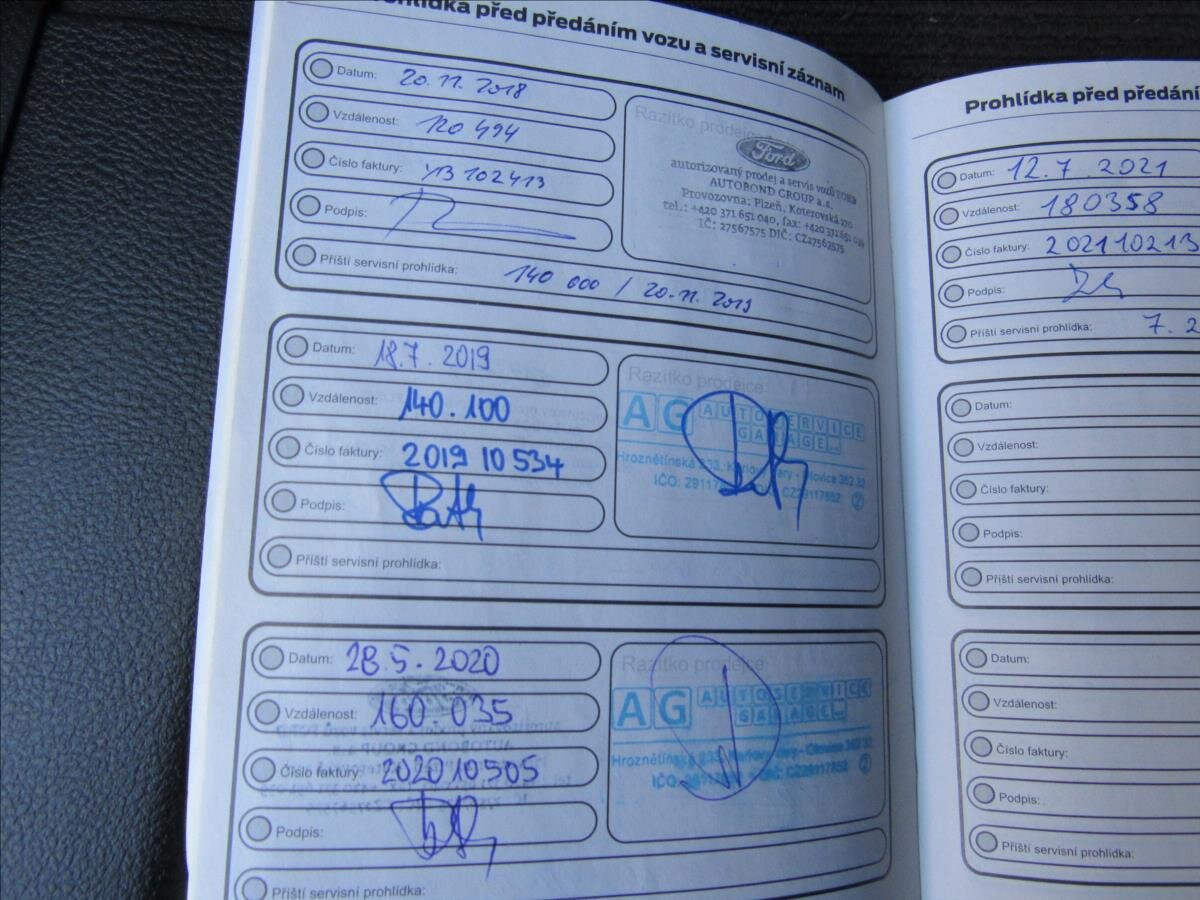 ohlídka před předáním vozu a servisní záznam
Datum: 20.11.2018
Vzdálenost: 120 494
Číslo faktury: YB 102413
Podpis:
Příští servisní prohlídka: 140 000 / 20.11.2019
Razítko prodejce
Ford
autorizovaný prodej a servis vozů FORD
AUTOBOND GROUP a.s.
Provozovna: Plzeň, Koterovská
tel.: +420 371 651 040, fax: +420 371 651
IČ: 27567575 DIČ: CZ27567575
Datum: 18.7.2019
Vzdálenost: 140.100
Číslo faktury: 2019 10 534
Podpis:
Příští servisní prohlídka:
Razítko prodejce
AG AUTOSERVICE
GARAGE
Hroznětínská 233, Karlovy Vary - Otovice 362 32
IČO: 29117852 DIČ: CZ29117852 2
Datum: 28.5.2020
Vzdálenost: 160.035
Číslo faktury: 2020 10505
Podpis:
Příští servisní prohlídka:
Razítko prodejce
AG AUTOSERVICE
GARAGE
Hroznětínská 233, Karlovy Vary - Otovice 362 32
IČO: 29117852 DIČ: CZ29117852 2
Prohlídka před předání
Datum: 12.7.2021
Vzdálenost: 180358
Číslo faktury: 202110213
Podpis:
Příští servisní prohlídka: 7.2
Datum:
Vzdálenost:
Číslo faktury:
Podpis:
Příští servisní prohlídka:
Datum:
Vzdálenost:
Číslo faktury:
Podpis:
Příští servisní prohlídka: